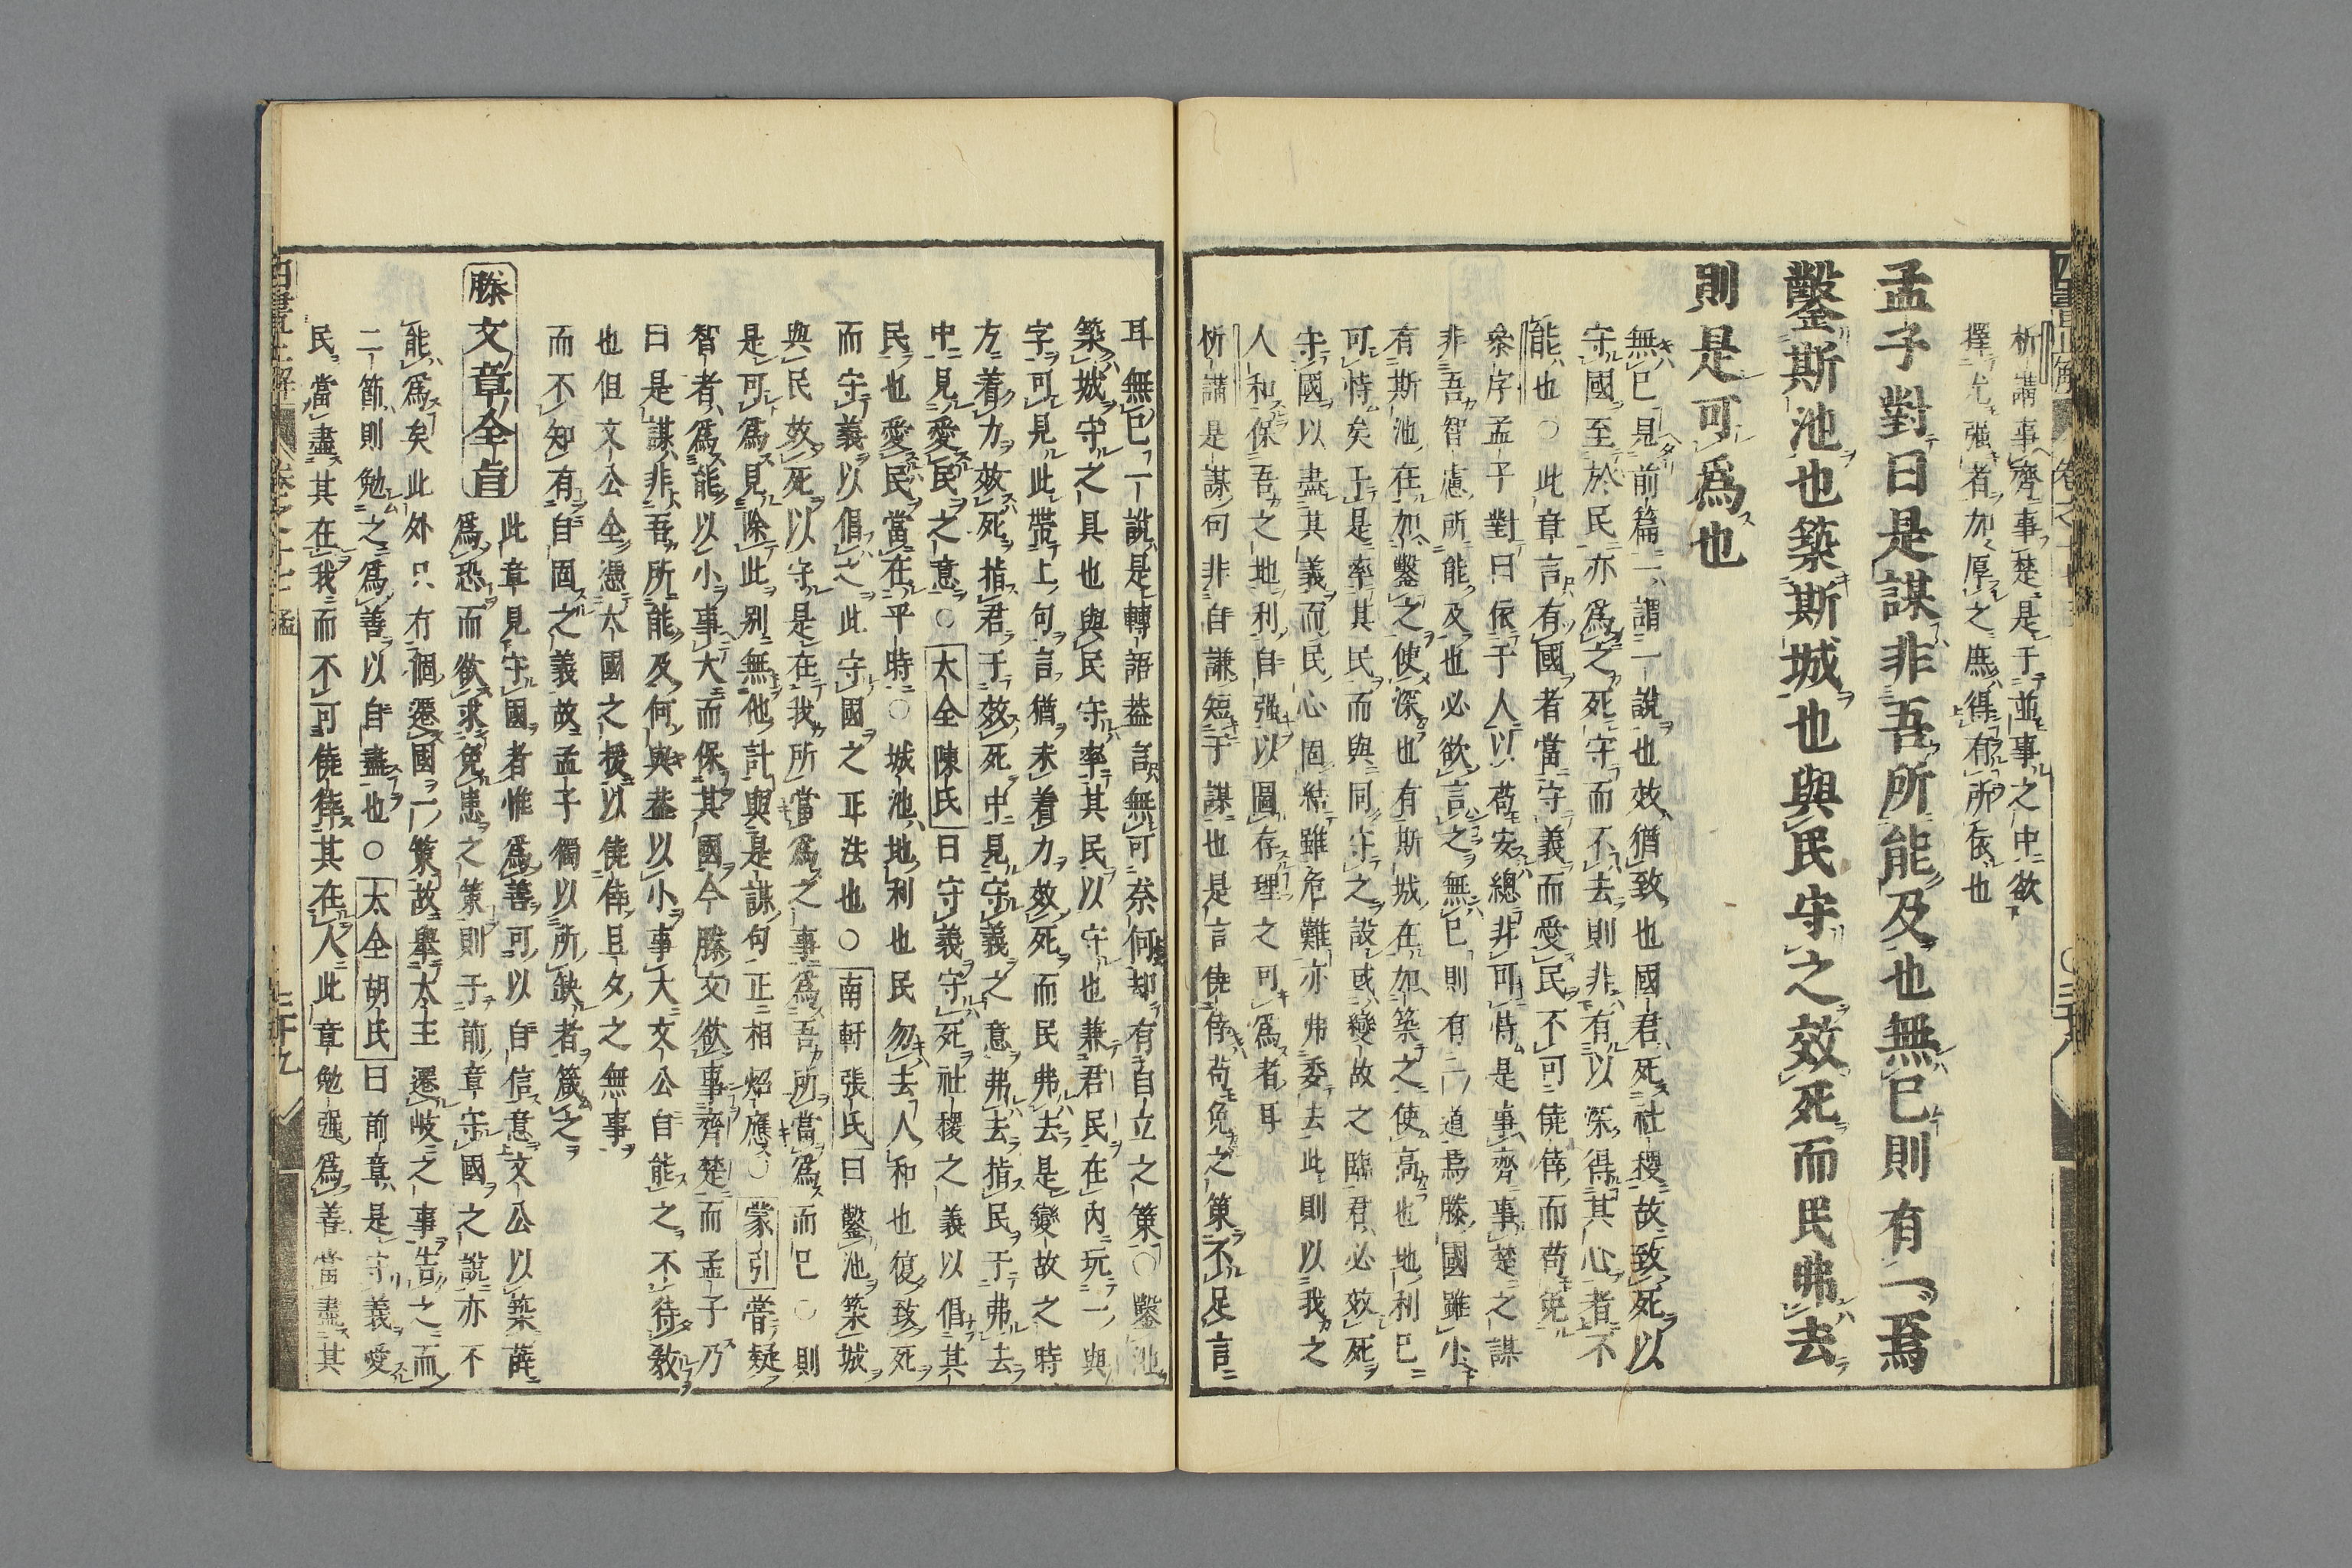 析講事齊事楚是于並事之中欲
擇尤强者加厚之庶得有所依也
孟子對曰是謀非吾所能及也無已則有一焉
鑿斯池也築斯城也與民守之效死而民弗去
則是可爲也
無已見前篇一謂一說也效猶致也國君死社稷故致死以
守國至於民亦爲之死守而不去則非有以深得其心者不
能也○此章言有國者當守義而愛民不可僥倖而苟免
衆序孟子對曰依于人以苟安總非可恃是事齊事楚之謀
非吾智慮所能及也必欲言之無已則有一道焉滕國雖小
有斯池在加鑿之使深也有斯城在加築之使高也地利已
可恃矣于是率其民而與同守之設或變故之臨君必效死
守國以盡其義而民心固結雖危難亦弗委去此則以我之
人和保吾之地利自强以圖存理之可爲者耳
析講是謀句非自謙短于謀也是言僥倖苟免之策不足言
耳無已一說是轉語葢言無可奈何却有自立之策○鑿池
築城守之具也與民守率其民以守也兼君民在內玩一與
字可見此帶上句言猶未着力效死而民弗去是變故之時
方着力效死指君于效死中見守義之意弗去指民于弗去
中見愛民之意○大全陳氏曰守義守死社稷之義以倡其
民也愛民當在平時○城池地利也民勿去人和也復致死
而守義以倡之此守國之正法也○南軒張氏曰鑿池築城
與民效死以守是在我所當爲之事爲吾所當爲而已○則
是可爲見除此別無他計與是謀句正相炤應○蒙引嘗疑
智者爲能以小事大而保其國今滕文欲事齊楚而孟子乃
曰是謀非吾所能及何與葢以小事大文公自能之不待教
也但文公全憑大國之援以僥倖旦夕之無事
而不知有自固之義故孟子獨以所缺者箴之
滕文章全旨 此章見守國者惟爲善可以自信意文公以築薛
爲恐而欲求免患之策則于前章守國之說亦不
能爲矣此外只有個遷國一策故舉太王遷岐之事告之而
二節則勉之爲善以自盡也○大全胡氏曰前章是守義愛
民當盡其在我而不可僥倖其在人此章勉强爲善當盡其